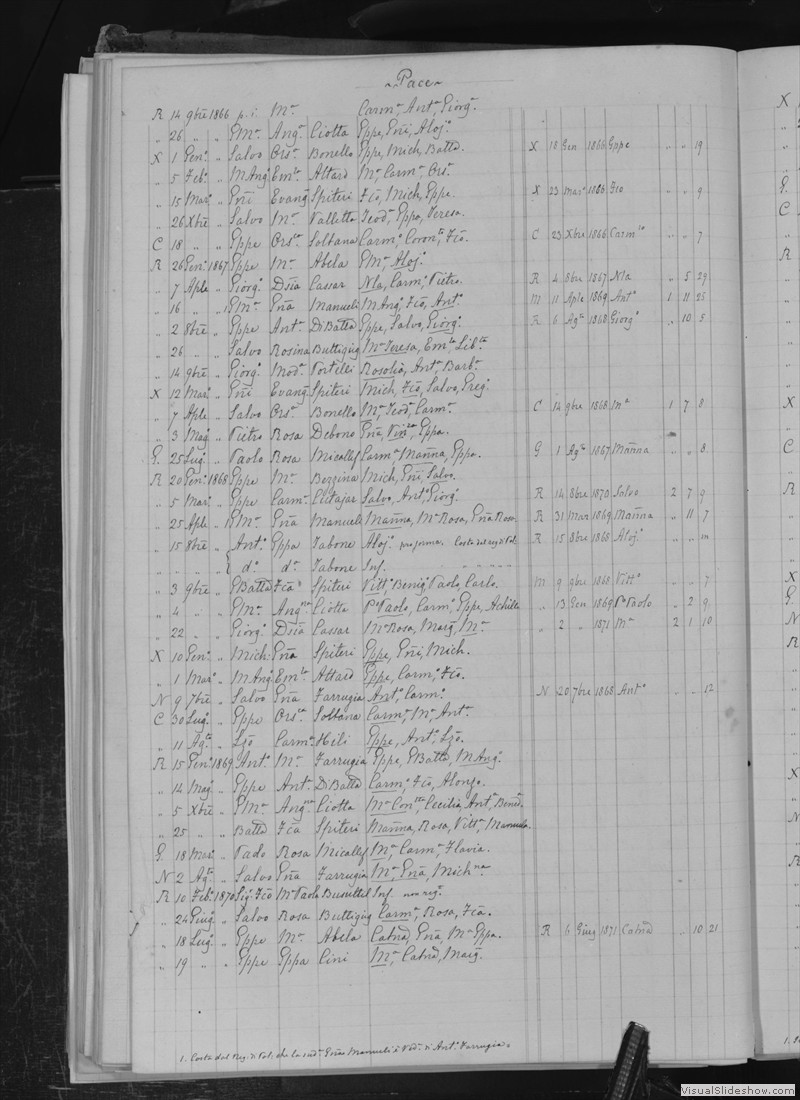 Pace
R 14 9bre 1866 p. i. Mª Carmª, Antª, Giorgª.
" 26 " " GMª Angª Ciotta Gppe, Gñi, Alojº.
X 1 Genº " Salvo Orsª Bonello Gppe, Mich, Batta. X 18 Gen 1866 Gppe " " 19
" 5 Febº " MAngº Emla Attard Mª Carmª Orsª.
" 15 Marº " Gñi Evangª Spiteri Fcõ, Mich, Gppe. X 23 Marº 1866 Fco " " 9
" 26 Xbre " Salvo Mª Valletta Teodª, Gppa, Teresa.
C 18 " " Gppe Orsla Soltana Carmª, Coronta, Fcã. C 23 Xbre 1866 Carmla " " 7
R 26 Genº 1867 Gppe Mª Abela GMª, Alojº.
" 7 Aple " Giorgº Dsia Cassar Nla, Carmº, Pietro. R 4 8bre 1867 Nla " 5 29
" 16 " " GMª Gñã Manueli MAngº, Fcõ, Antº. M 11 Aple 1869 Antº 1 11 25
" 2 8bre " Gppe Antª DiBatta Gppe, Salvo, Giorgº. R 6 Agto 1868 Giorgº " 10 5
" 26 " " Salvo Rosina Buttigieg Mª Teresa, Emla, Libta
" 14 9bre " Giorgº Modª Portelli Rosolia, Antª, Barbª.
X 12 Marº " Gñi Evangª Spiteri Mich, Fcõ, Salvo, Gregº
" 7 Aple " Salvo Orsª Bonello Mª, Teodª, Carmª. C 14 9bre 1868 Mª 1 7 8
" 3 Magº " Pietro Rosa Debono Gñã, Vinza, Gppa.
G. 25 Lugº " Paolo Rosa Micallef Carmª Mañna, Gppa. G 1 Agto 1867 Mañna " " 8.
R 20 Genº 1868 Gppe Mª Bezzina Mich, Gñi, Salvo.
" 5 Marº " Gppe Carmª Cutajar Salvo, Antº, Giorgº. R 14 8bre 1870 Salvo 2 7 9
" 25 Aple " GMª Gñã Manueli Mañna, Mª Rosa, Gñã Rosa. R 31 Mar 1869 Mañna " 11 7
" 15 8bre " Antº Gppa Tabone Alojº pro forma. Costa dal reg. di Val. R 15 8bre 1868 Alojº " " m
" " " " dº dª Tabone Inf.
" 3 9bre " GBatta Fcã Spiteri Vittº, Benigº Paolo, Carlo. M 9 9bre 1868 Vittº " " 7
" 4 " " GMª Angna Ciotta Pº Paolo, Carmº, Gppe, Achille " 13 Gen 1869 Pº Paolo " 2 9
" 22 " " Giorgº Dsia Cassar Mª Rosa, Marg, Mª " 2 " 1871 Mª 2 1 10
X 10 Genº " Mich Gñã Spiteri Gppe, Gñi, Mich.
" 1 Marº " MAngº Emla Attard Gppe, Carmº, Fcõ.
N 9 7bre " Salvo Gñã Farrugia Antº, Carmº N 20 7bre 1868 Antº " " 12
C 30 Lugº " Gppe Orsla Soltana Carmª, Mª, Antª.
" 11 Agto " Lzõ Carmª Hili Gppe, Antº, Lzõ.
R 15 Genº 1869 Antº Mª Farrugia Gppe, GBatta, MAngº.
" 14 Magº " Gppe Antª DiBatta Carmº, Fcõ, Alonzo.
" 5 Xbre " GMª Angna Ciotta Mª Conta, Cecilia, Antª, Bendª.
" 25 " " Batta Fcã Spiteri Mañna, Rosa, Vittª, Manuela.
G. 18 Marº " Paolo Rosa Micallef Mª, Carmª, Flavia.
N 2 Agto " Salvo Gñã Farrugia Mª, Gñã, Michna
R 10 Febº 1870 Sigº Fcõ Mª Paola Busuttil Inf. non regª.
" 24 Giugº " Salvo Rosa Buttigieg Carmª, Rosa, Fcã.
" 18 Lugº " Gppe Mª Abela Catnã, Gñã, Mª Gppa. R 6 Giug 1871 Catnã " 10 21
" 19 " " Gppe Gppa Cini Mª, Catnã, Marg.
1. Costa dal Reg. di Val. che la sudª Gñã Manueli è Vedª di Antº Farrugia.
VisualSlideshow.com